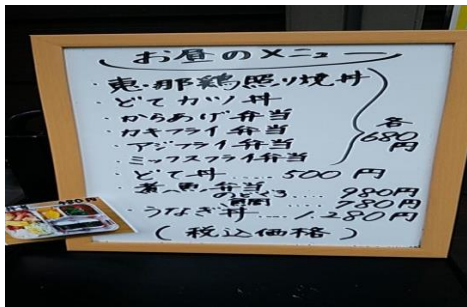 お昼のメニュー
・恵那鶏照り焼丼
・どてカツ丼
・からあげ弁当
・カキフライ弁当
・アジフライ弁当
・ミックスフライ弁当
各680円
・どて丼....500円
・煮魚弁当
のどぐろ 980円
780円
・うなぎ丼....1,280円
(税込価格)